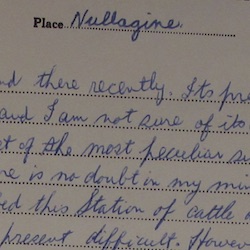 Place Nullagine.
nd there recently. Its pre
and I am not sure of its
et of the most peculiar su
ne is no doubt in my min
ed this Station of cattle
present difficult. However